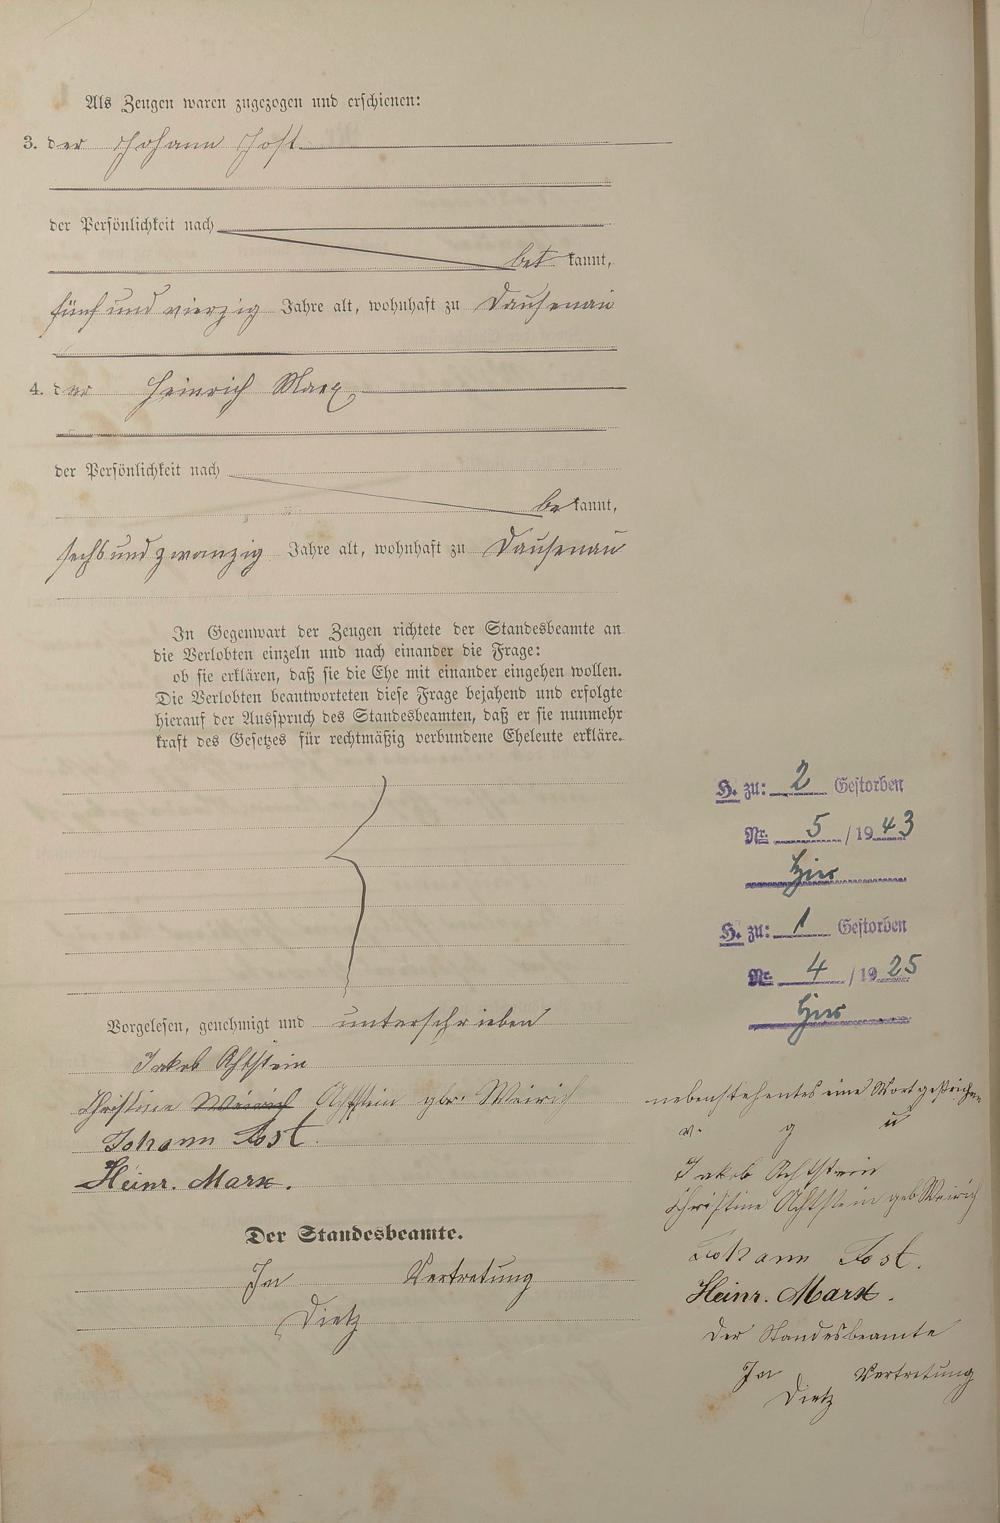 Als Zeugen waren zugezogen und erschienen:
3. der Johann Jost
der Persönlichkeit nach
bekannt,
fünf und vierzig Jahre alt, wohnhaft zu Dausenau
4. der Heinrich Marx,
der Persönlichkeit nach
bekannt,
sechs und zwanzig Jahre alt, wohnhaft zu Dausenau
In Gegenwart der Zeugen richtete der Standesbeamte an
die Verlobten einzeln und nach einander die Frage:
ob sie erklären, daß sie die Ehe mit einander eingehen wollen.
Die Verlobten beantworteten diese Frage bejahend und erfolgte
hierauf der Ausspruch des Standesbeamten, daß er sie nunmehr
kraft des Gesetzes für rechtmäßig verbundene Eheleute erkläre.
Vorgelesen, genehmigt und unterschrieben
Jakob Achtstein
Christine Weirich Achtstein gbr. Weirich
Johann Jost.
Heinr. Marx.
Der Standesbeamte.
In Vertretung
Dietz
H. zu: 2 Gestorben
Nr. 5 / 1943
hier
H. zu: 1 Gestorben
Nr. 4 / 1925
hier
nebenstehentes eine Wort gestrichen
v. g u
Jakob Achtstein
Christine Achtstein geb Weirich
Johann Jost.
Heinr. Marx.
Der Standesbeamte
In Vertretung
Dietz